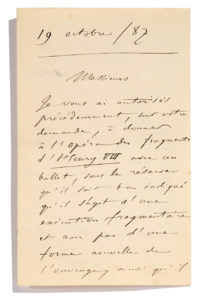 19 octobre / 87
Messieurs
Je vous ai autorisés
précédemment, sur votre
demande, à donner
à l'opéra des fragments
d'Henry VIII avec un
ballet, sous la réserve
qu'il soit bien indiqué
qu'il s'agit d'une
exécution fragmentaire
et non pas d'une
forme nouvelle de
l'ouvrage, ainsi qu'il